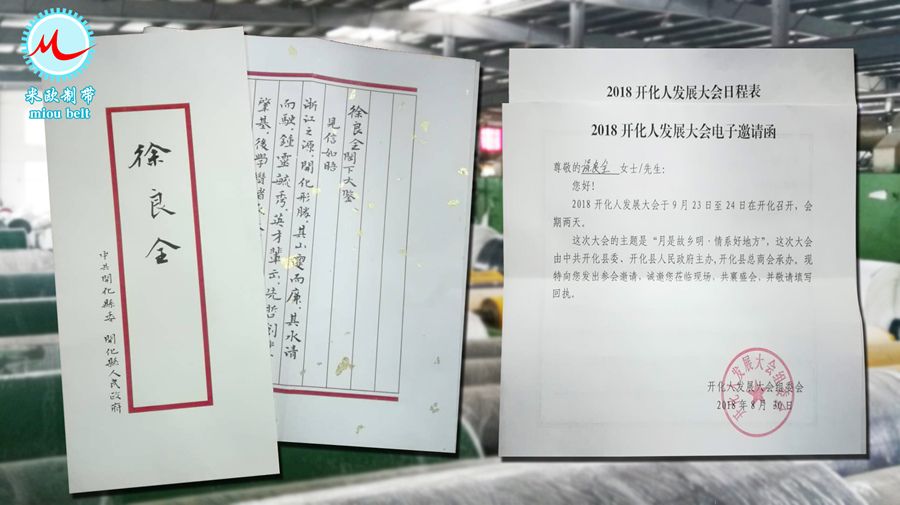 米欧制带
miou belt
徐良全
中共開化縣委 開化縣人民政府
徐良全閣下大鑒
見信如晤
浙江之源，開化形勝，其山
而廉，其水清
而駛，鍾靈毓秀，英才輩出，先哲創業
肇基，後學
2018 开化人发展大会日程表
2018 开化人发展大会电子邀请函
尊敬的徐良全 女士/先生：
您好！
2018 开化人发展大会于 9 月 23 日至 24 日在开化召开、会
期两天。
这次大会的主题是“月是故乡明·情系好地方”，这次大会
由中共开化县委、开化县人民政府主办,开化县总商会承办。现
特向您发出参会邀请，诚邀您莅临现场、共襄盛会、并敬请填写
回执。
开化人发展大会组委会
2018 年 8 月 30 日
开化人发展大会组委会